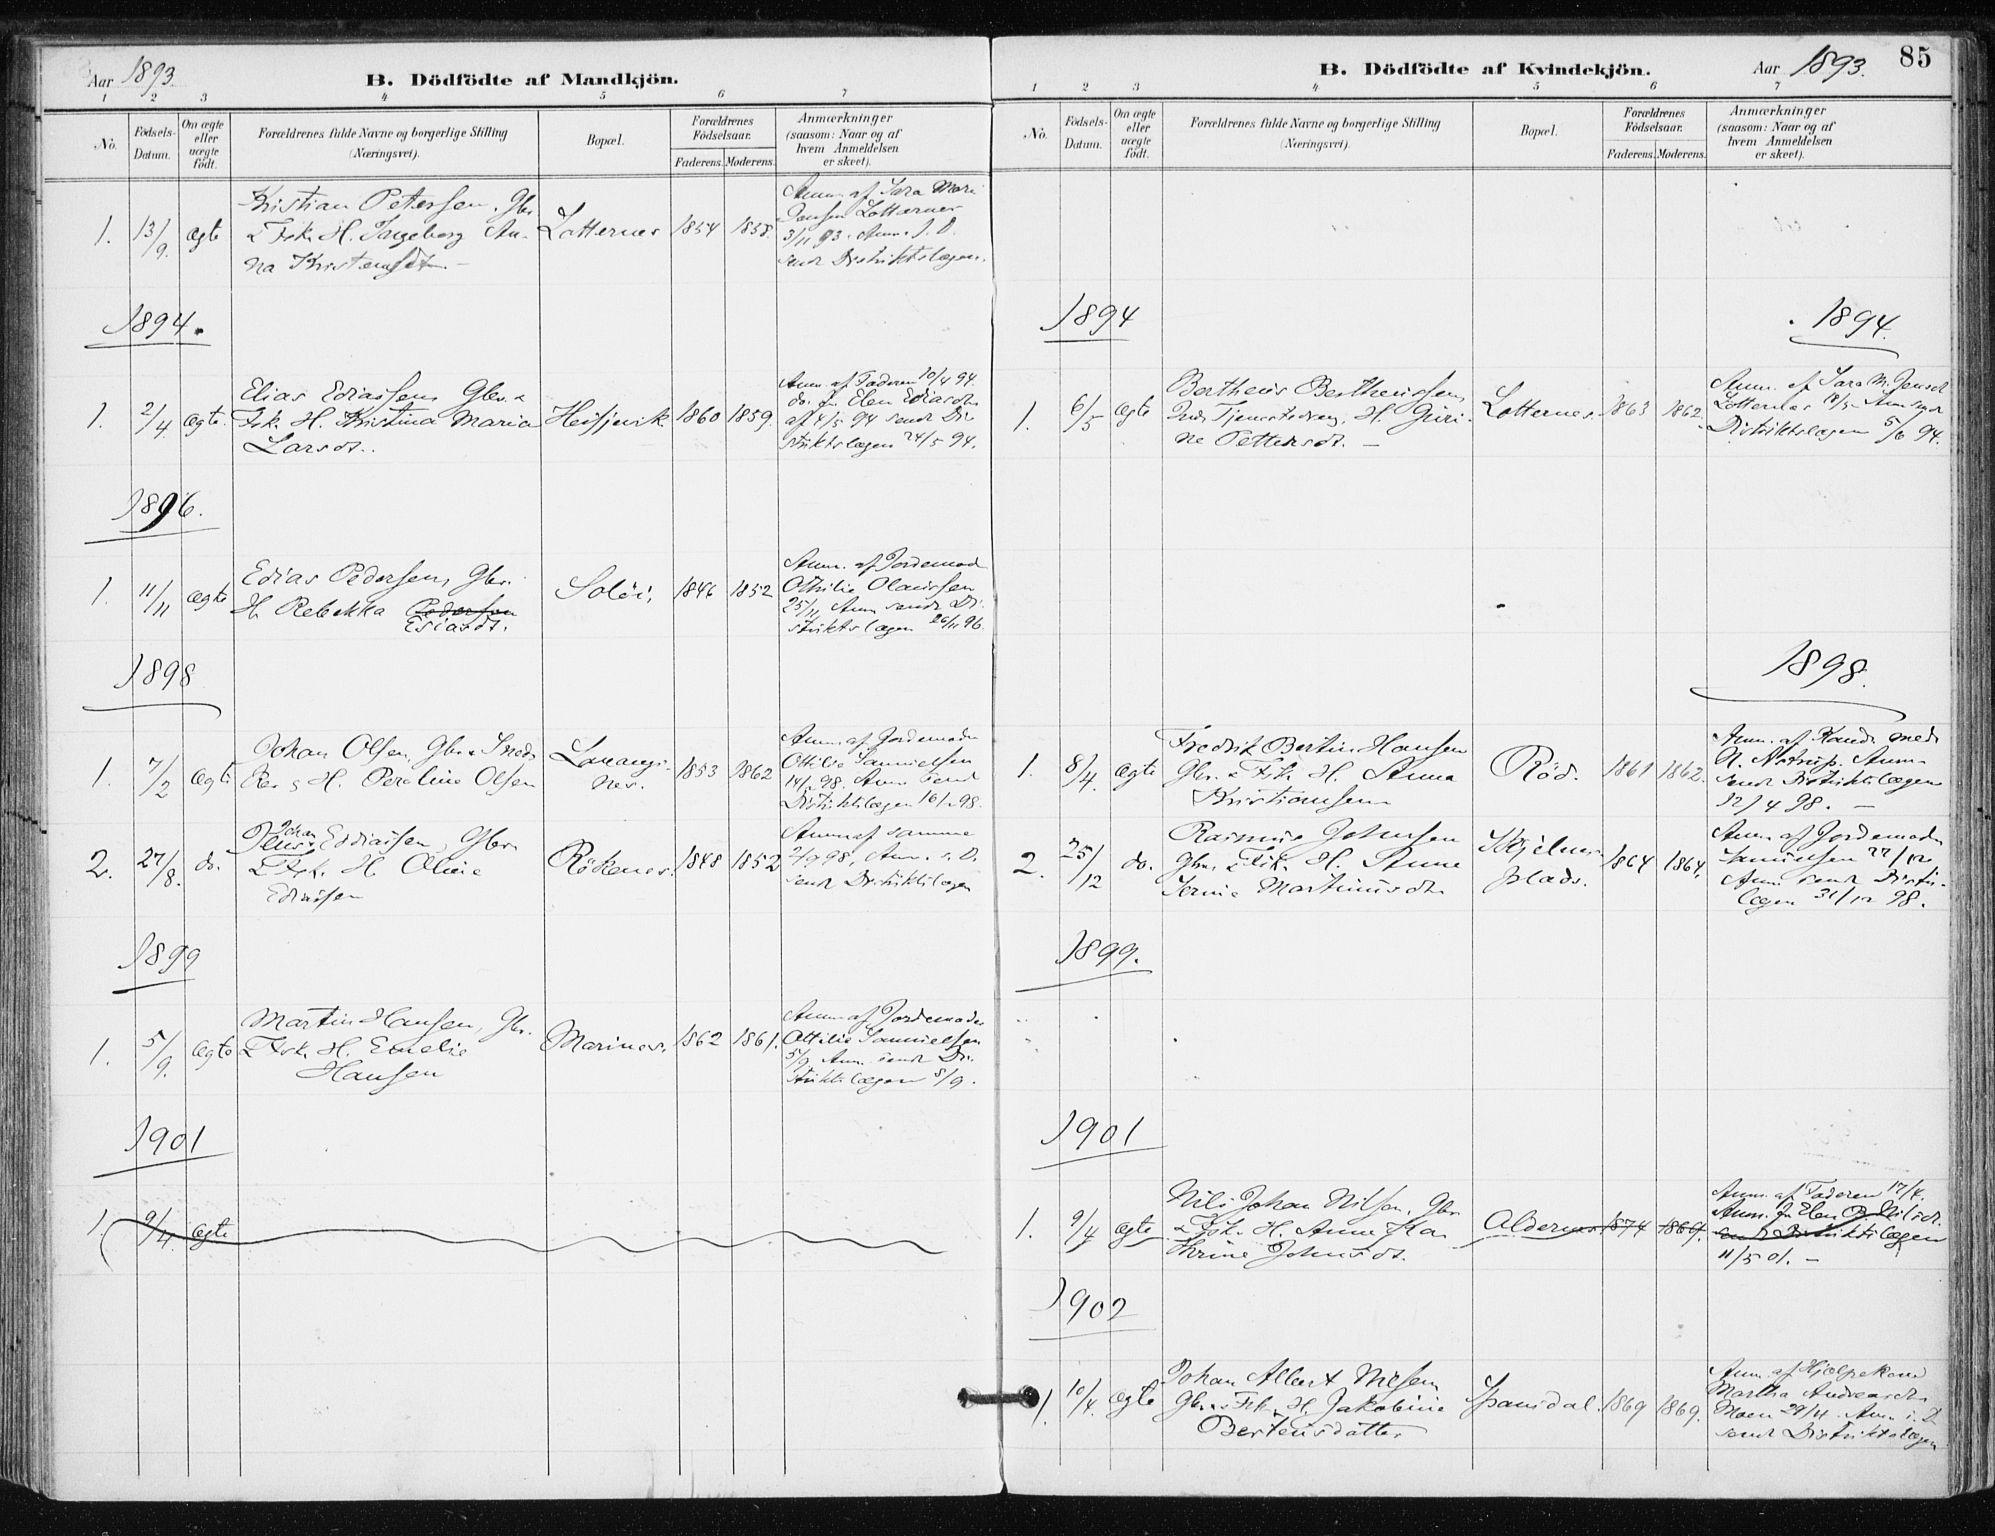 Aar 1893.
B. Dödfödte af Mandkjön.
1 2 3 4 5 6 7
No.
Födsels-Datum.
Om ægte eller uægte födt.
Forældrenes fulde Navne og borgerlige Stilling (Næringsvei).
Bopæl.
Forældrenes Födselsaar.
Faderens. Moderens.
Anmærkninger (saasom: Naar og af hvem Anmeldelsen er skeet).
1. 13/9. ægte
Kristian Petersen, Gbr.
& Fsk. H. Ingeborg An-
na Kristensdt.
Lotternes 1854 1858.
Anm. af Sara Mari
Jensen Lotternes
3/11 93. Anm. s. D.
sendt Distriktslægen.
1894.
1. 2/4 ægte.
Elias Ediassen Gbr. &
Fsk. H. Kristina Maria
Larsdt.
1860 1859.
Anm. af Faderen 10/4 94.
do. fr. Elen Ediasdtr.
af 4/5 94 sendt Di-
striktslægen 24/5 94.
1896.
1. 11/11 ægte
Edias Pedersen, Gbr.
H. Rebekka Pedersen
Esiasdt.
Solöi, 1846 1852
Anm. af Jordemod
Othilie Olaussen
25/11 Anm. sendt Di-
striktslægen 26/11 96.
1898
1. 7/2 ægte
Johan Olsen, Gbr. & Sned-
ker & H. Peroline Olsen
Lavangs-
nes. 1853 1862
Anm. af Jordemoder
Ottilie Samuelsen
98. Anm. sendt
Distriktslægen 98.
2. 27/8. do.
Johan
Jens Ediassen, Gbr.
& Fsk. H. Olivie
Ediassen
Rökenes. 1848 1852
Anm. af samme
2/9 98, Anm. s. D.
sendt Distriktslægen
1899
1. 5/9. ægte
Martin Hansen, Gbr.
& Fsk. H. Emelie
Hansen
Marines. 1862 1861.
Anm. af Jordemoder
Ottilie Samuelsen
5/9 Anm. sendt Di-
striktslægen 8/9.
1901
1. 9/4. ægte
85
B. Dödfödte af Kvindekjön.
Aar 1893.
1 2 3 4 5 6 7
No.
Födsels-Datum.
Om ægte eller uægte födt.
Forældrenes fulde Navne og borgerlige Stilling (Næringsvei).
Bopæl.
Forældrenes Födselsaar.
Faderens. Moderens.
Anmærkninger (saasom: Naar og af hvem Anmeldelsen er skeet).
1894 1894.
1. 6/5 ægte
Bertheus Bertheussen,
Inds. Tjenestedreng, H. Guri-
ne Pettersdt.
Lotternes. 1863 1862.
Anm. af Sara M. Jensen
Lotternes 18/5 Anm. sendt
Distriktslægen 5/6 94.
1898.
1. 8/4. ægte
Fredrik Bertin Hansen
Gbr. & Fsk. H. Anna
Kristiansen
Röd. 1861 1862.
Anm. af Kand. med.
N. Astrup. Anm.
sendt Distriktslægen
12/4 98.
2. 25/12 do.
Rasmus Johnsen
Gbr. & Fsk. H. Anne
Martinusdtr.
Kjelnes-
plads. 1864 1864.
Anm. af Jordemoder
Samuelsen 27/12
Anm. sendt Distr.-
lægen 31/12 98.
1899.
1901
1. 9/4 ægte
Nils Johan Nilsen, Gbr.
& Fsk. H. Anne Ka-
thrine Johnsdt.
Aldernes 1874 1869.
Anm. af Faderen 17/4.
Anm. fr. Elen B. Nilsdt.
sendt Distriktslægen
11/5 01.
1902
1. 10/4. ægte
Johan Albert Nilsen
Gbr. & Fsk. H. Jakobine
Berteusdatter
Spansdal. 1869 1869.
Anm. af Hjælpekone
Martha Andreasdtr.
Moen 29/4. Anm. s. D.
sendt Distriktslægen